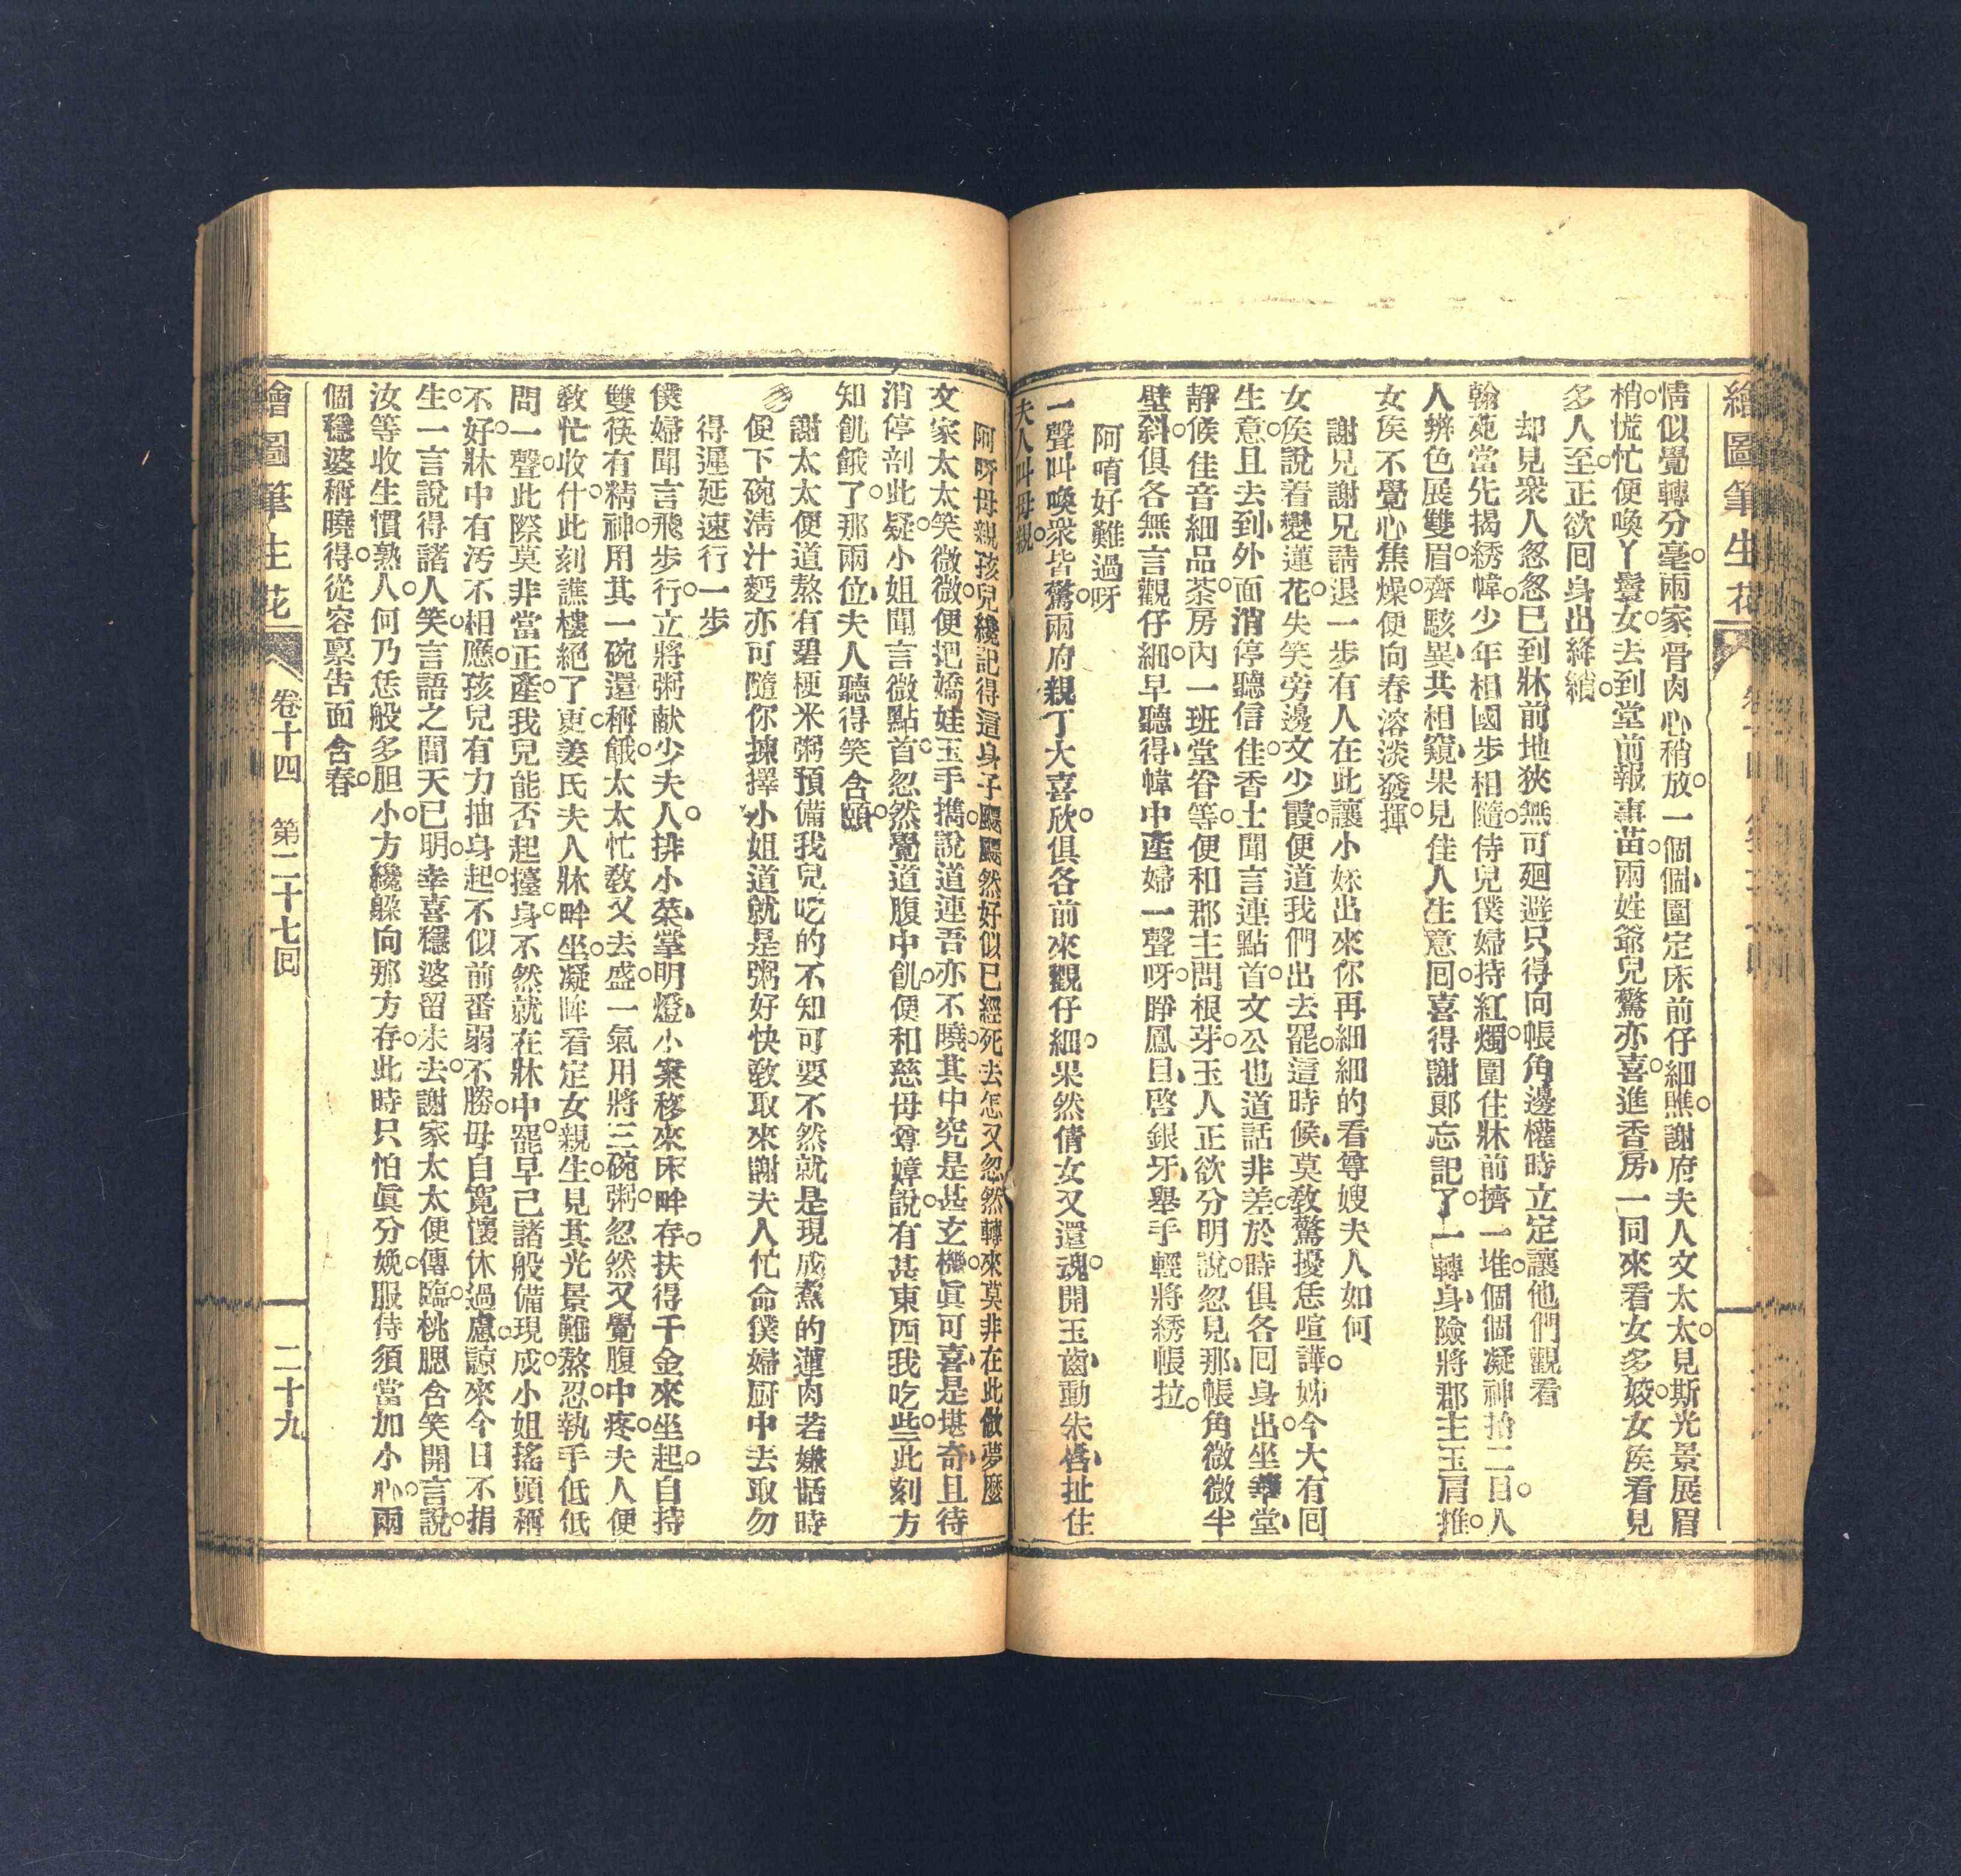 繪圖筆生花
情似覺轉分毫。兩家骨肉心稍放。一個個圍定床前仔細瞧。謝府夫人文太太。見斯光景展眉
梢。慌忙便喚丫鬟女。去到堂前報事苗。兩姓爺兒驚亦喜。進香房、一同來看女多姣。女侯看見
多人至。正欲囘身出絳綃。
却見衆人忽忽已到牀前地狹無可廻避只得向帳角邊權時立定讓他們觀看
翰苑當先揭綉幃。少年相國步相隨。侍兒僕婦持紅燭。圍住牀前擠一堆。個個凝神拾二目。人
人辨色展雙眉。齊駭異、共相窺、果見佳人生意囘。喜得謝郞忘記了。一轉身、險將郡主玉肩推。
女侯不覺心焦燥。便向春溶淡發揮。
謝兄謝兄請退一步有人在此讓小妹出來你再細細的看尊嫂夫人如何
女侯說着變蓮花。失笑旁邊文少霞。便道我們出去罷。這時候、莫敎驚擾恁喧譁。姊今大有囘
生意。且去到、外面消停聽信佳。香士聞言連點首。文公也道話非差。於時俱各囘身出。坐華堂、
靜候佳音細品茶。房內一班堂眷等。便和郡主問根芽。玉人正欲分明說。忽見那、帳角微微半
壁斜。俱各無言觀仔細。早聽得、幃中產婦一聲呀。睜鳳目、啓銀牙、舉手輕將綉帳拉。
阿唷好難過呀
一聲叫喚衆皆驚。兩府親丁大喜欣。俱各前來觀仔細。果然倩女又還魂。開玉齒、動朱唇、扯住
夫人叫母親。
阿呀母親孩兒纔記得這身子飃飃然好似已經死去怎又忽然轉來莫非在此做夢麼
文家太太笑微微。便把嬌娃玉手擕。說道連吾亦不曉。其中究是甚玄機。眞可喜、是堪奇、且待
消停剖此疑。小姐聞言微點首。忽然覺道腹中飢。便和慈母尊嫜說。有甚東西我吃些。此刻方
知飢餓了。那兩位、夫人聽得笑含頤。
謝太太便道熬有碧梗米粥預備我兒吃的不知可要不然就是現成煮的蓮肉若嫌甛時
便下碗淸汁麪亦可隨你揀擇小姐道就是粥好快敎取來謝夫人忙命僕婦厨中去取勿
得遲延速行一步
僕婦聞言飛步行。立將粥献少夫人。排小菜、掌明燈、小案移來床畔存。扶得千金來坐起。自持
雙筷有精神。用其一碗還稱餓。太太忙敎又去盛。一氣用將三碗粥。忽然又覺腹中疼。夫人便
敎忙收什。此刻譙樓絕了更。姜氏夫人牀畔坐。凝眸看定女親生。見其光景難熬忍。執手低低
問一聲。此際莫非當正產。我兒能否起擡身。不然就在牀中罷。早已諸般備現成。小姐搖頭稱
不好。牀中有汚不相應。孩兒有力抽身起。不似前番弱不勝。母自寬懷休過慮。諒來今日不捐
生。一言說得諸人笑。言語之間天已明。幸喜穩婆留未去。謝家太太便傳臨。桃腮含笑開言說。
汝等收生慣熟人。何乃恁般多胆小。方纔躲向那方存。此時只怕眞分娩。服侍須當加小心。兩
個穩婆稱曉得。從容禀告面含春。
繪圖筆生花
卷十四
第二十七囘
二十九